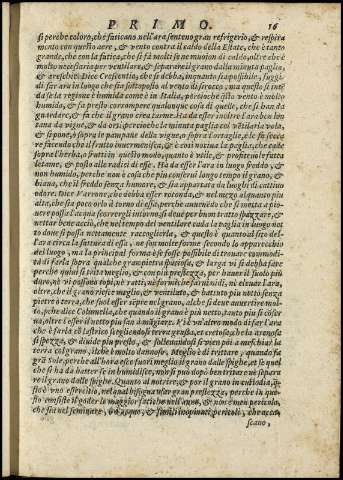 PRIMO. 16
si perche coloro, che faticano nell'ara sentono gran refrigerio, & respira
mento con questo aere, & vento contra il caldo della Estate, che è tanto
grande, che con la fatica, che si fà molti se ne muoion di caldo, oltre che è
molto necessario per ventilare, & separare il grano dalla minuta paglia,
et areschte. Dice Crescentio, che si debba, inquanto sia possibile, fuggi
di far ara in luogo che sia sottoposto al vento di sirocco, ma questo s'inten
da se la regione è humida come è in Italia, perioche esso vento è molto
humido, & fa presto corrompere qualunque cosa di quelle, che si han da
guardare, & fa che il grano crea turme. Ha da esser inoltre l'ara ben lon
tana da vigne, & da orti, percioche la minuta paglia così vetilata vola,
& si pone, ò sopra le pampane della vigna, o sopra l'ortaglie, e le fa secca
re facendo che il frutto intermenisca, & è così nociua la paglia, che cade
sopra l'herba, o frutti in questo modo, quanto è vtile, & profitteuole fatta
letame, & posta alle radici di esse. Ha da esser l'ara in luogo freddo, &
non humido, perche non è cosa che piu conserui lungo tempo il grano, &
biana, che il freddo senza humore, & sia apparata da luoghi di cattiuo
odore. Dice Varrone, che debba esser rotonda, & nel mezzo alquanto piu
alta, che sia poco orlo il torno di essa, perche auuenendo che si metta à pio
uere possa l'acqua scorrer gli intorno, si deue per bum tratto spazzare, &
nettar bene acciò, che nel tempo del ventilare cada la paglia in luogo net
to donde si possa nettamente raccoglierla, & questo è quanto al sito del-
l'ara circa la fattura di essa, ne fan molte forme secondo lo apparecchio
del luogo, ma la principal forma è se fosse possibile di trouare commodi-
tà di farla sopra qualche gran pietra spatiosa, & larga vi si debba fare
perche quiui si trita meglio, & con piu prestezza, per hauer il suolo più
duro, nè vi possono topi, nè ratti, nè formiche far nidi, nè eleuar l'ara,
oltre, che il grano riesce meglio, & ventilato, & battuto piu netto senza
pietre ò terra, che suol esser sepre nel grano, alche si deue auuertire mol-
to, pche dice Columella, che quando il grano è più netto, tanto piu si cōser
ua, oltre l'esser il netto piu san à māgiare. V'è vn'altro modo di far l'ara
che è farla cō lastrico scegliendosi terra grassa, et cretosa, che la creatosa
si spezza, & diuide piu presto, & solleuandosi si vien poi à meschiar la
terra col grano, il che è molto dannoso. Meglio è di tritare, quando fa
grā Sole, perche all'hora esce fuori meglio il grano dalle spighe, et se quel
che si ha da batter se in humidisce, non si può dopò ben tritare nè separa
re il grano dalle spighe. Quanto al nutrire, & por il grano in custodia, q
sto è vno essercitio, nel qual bisogna vsar gran prestezza, perche in que-
sto consiste il goder le maggior fatiche nell'anno, & non è men pericolo,
che sia nel seminare, tra acque, & simili inopinati pericoli, che acca-
scano,